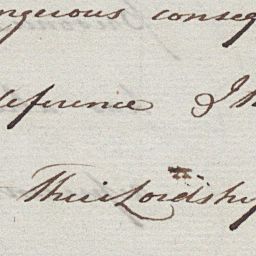 ngerous conseq
deference & I
Their Lordship